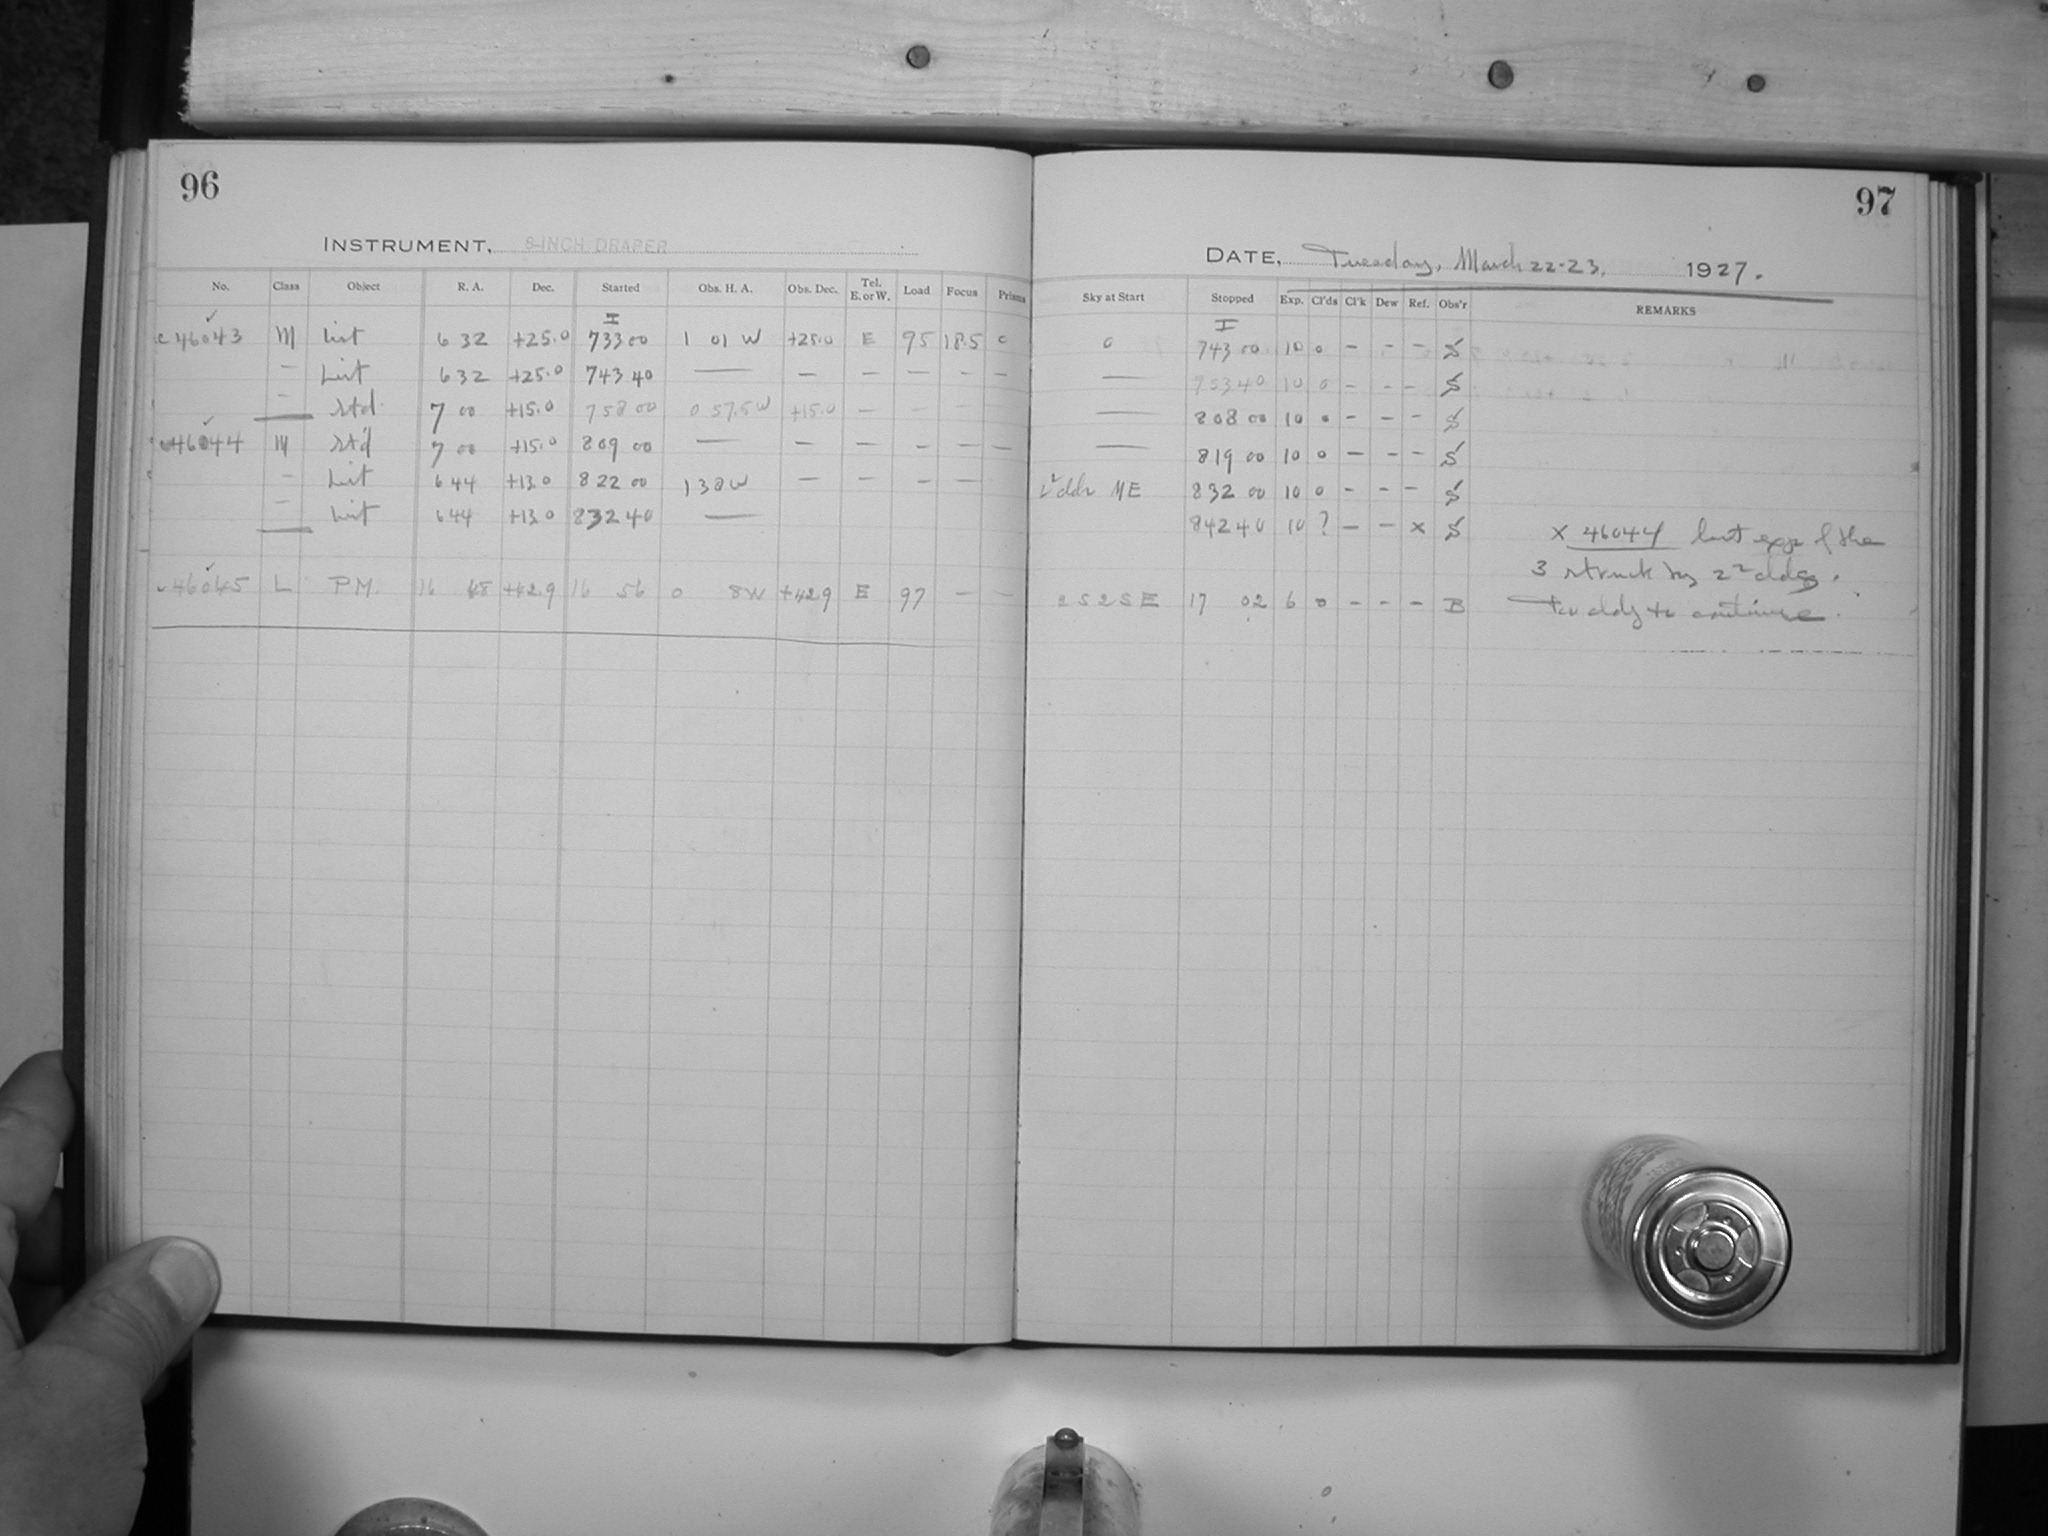 96
INSTRUMENT, 8-INCH DRAPER
No. Class Object R. A. Dec. Started Obs. H. A. Obs. Dec. Tel. E. or W. Load Focus Prisms
I
c46043 M List 6 32 +25.0 733 00 1 01 W +25.0 E 95 18.5 0
— List 6 32 +25.0 743 40 — — — — — —
— Std. 7 00 +15.0 758 00 0 57.5 W +15.0 — — —
46044 M Std 7 00 +15.0 809 00 — — — — — —
— List 6 44 +13.0 822 00 1 38 W — — — —
— List 6 44 +13.0 832 40 —
46045 L PM. 16 48 +42.9 16 56 0 8 W +42.9 E 97 — —
97
DATE, Tuesday, March 22-23, 1927.
Sky at Start Stopped Exp. Cl'ds Cl'k Dew Ref. Obs'r REMARKS
I
0 743 00 10 0 — — — S
— 753 40 10 0 — — — S
— 808 00 10 0 — — — S
— 819 00 10 0 — — — S
NE 832 00 10 0 — — — S
842 40 10 ? — — x S
x 46044 last exp of the
3 struck by
2S2SE 17 02 6 0 — — — B
to continue.